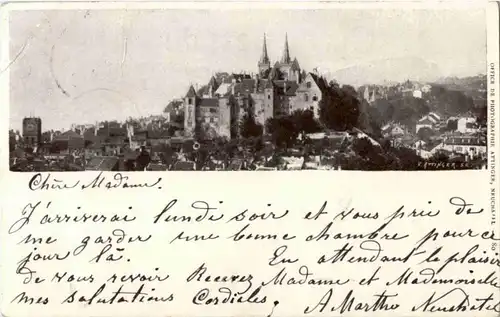 OFFICE DE PHOTOGRAPHIE ATTINGER, NEUCHATEL
V. ATTINGER sc.
Chère Madame.
J'arriverai lundi soir et vous prie de
me garder une bonne chambre pour ce
jour là. En attendant le plaisir
de vous revoir Recevez Madame et Mademoiselle
mes salutations Cordiales, A Marthe Neuchâtel